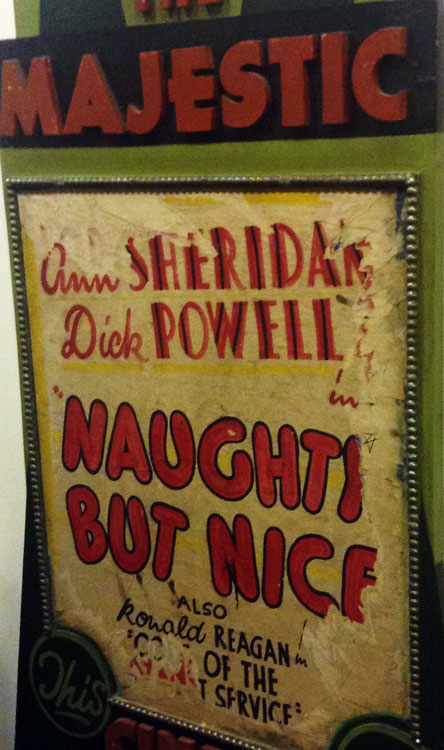 THE
MAJESTIC
Ann SHERIDAN
Dick POWELL
in
"NAUGHTY
BUT NICE
ALSO
Ronald REAGAN in
OF THE
SERVICE"
This